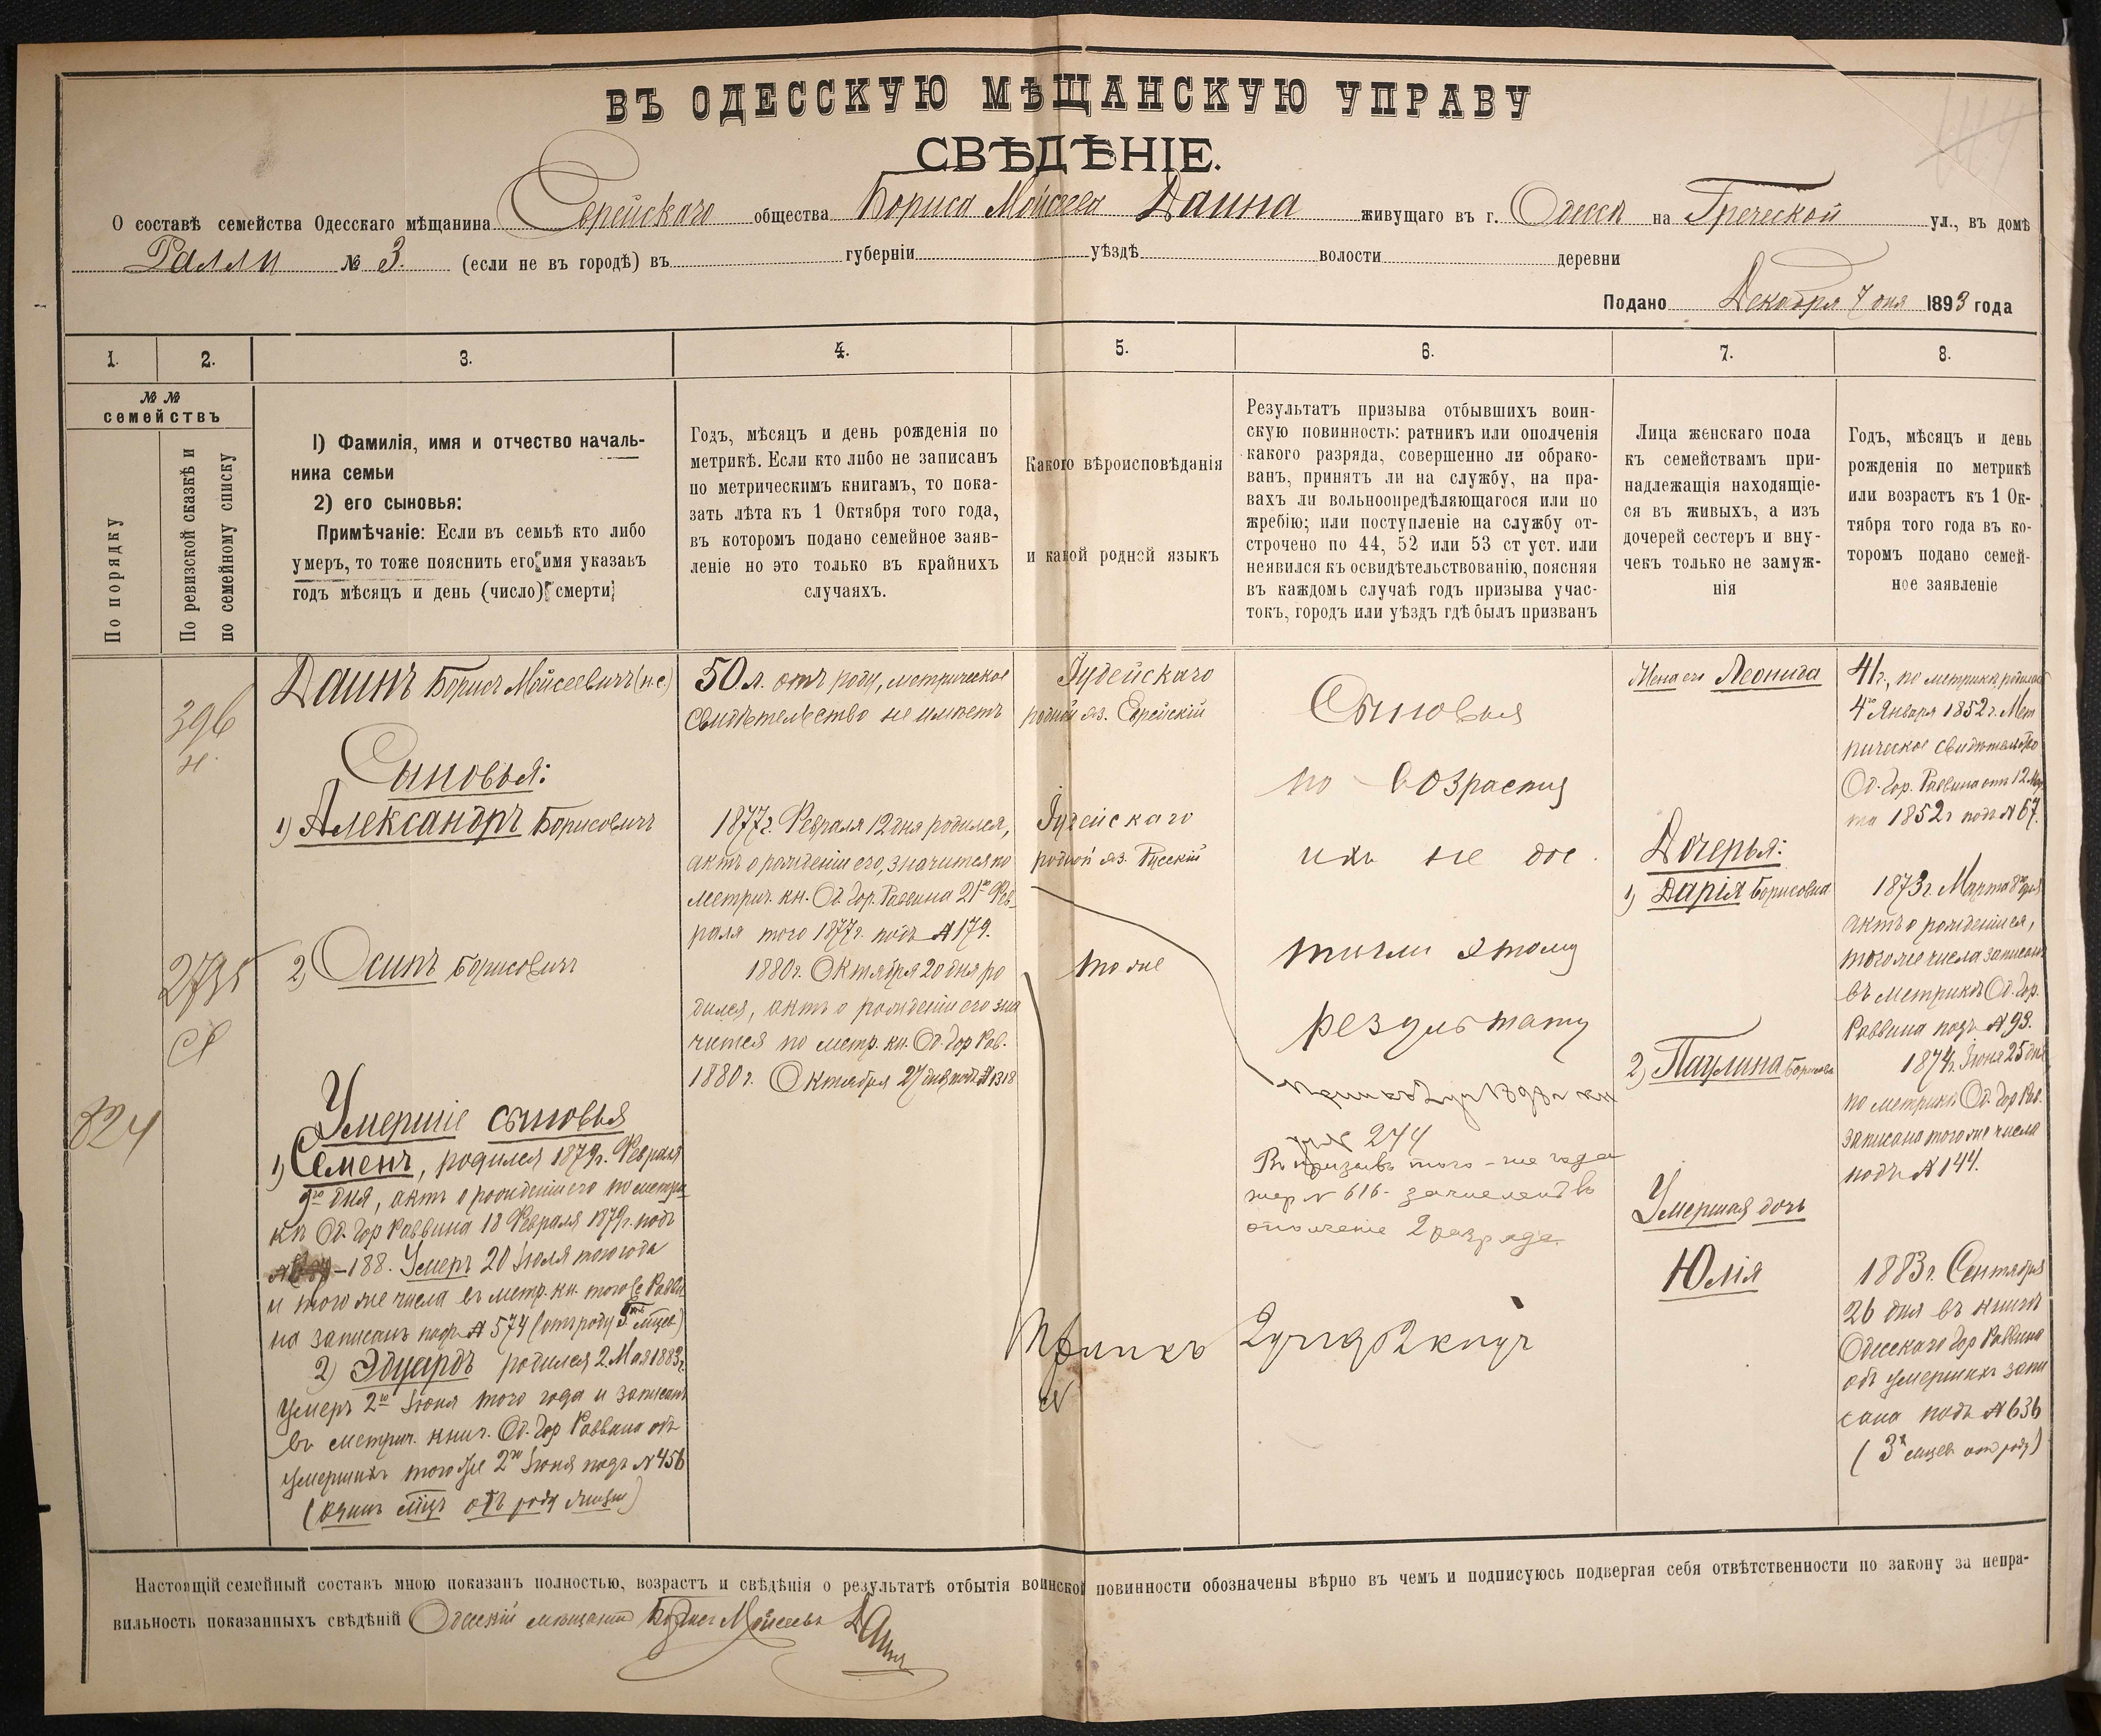 ВЪ ОДЕССКУЮ МѢЩАНСКУЮ УПРАВУ
СВѢДѢНІЕ.
О составѣ семейства Одесскаго мѣщанина Еврейскаго общества Бориса Мойсеева Даина живущаго въ г. Одессѣ на Греческой ул., въ домѣ
Ралли № 3. (если не въ городѣ) въ губерніи уѣздѣ волости деревни
Подано Декабря 7 дня 1893 года
1.
2.
3.
4.
5.
6.
7.
8.
№ №
семействъ
По порядку
По ревизской сказкѣ и
по семейному списку
1) Фамилія, имя и отчество началь-
ника семьи
2) его сыновья:
Примѣчаніе: Если въ семьѣ кто либо
умеръ, то тоже пояснить его имя указавъ
годъ мѣсяцъ и день (число) смерти;
Годъ, мѣсяцъ и день рожденія по
метрикѣ. Если кто либо не записанъ
по метрическимъ книгамъ, то пока-
зать лѣта къ 1 Октября того года,
въ которомъ подано семейное заяв-
леніе но это только въ крайнихъ
случаяхъ.
Какого вѣроисповѣданія
и какой родной языкъ
Результатъ призыва отбывшихъ воин-
скую повинность: ратникъ или ополченія
какого разряда, совершенно ли обрако-
ванъ, принятъ ли на службу, на пра-
вахъ ли вольноопредѣляющагося или по
жребію; или поступленіе на службу от-
строчено по 44, 52 или 53 ст уст. или
неявился къ освидѣтельствованію, поясняя
въ каждомъ случаѣ годъ призыва учас-
токъ, городъ или уѣздъ гдѣ былъ призванъ
Лица женскаго пола
къ семействамъ при-
надлежащія находящіе-
ся въ живыхъ, а изъ
дочерей сестеръ и вну-
чекъ только не замуж-
нія
Годъ, мѣсяцъ и день
рожденія по метрикѣ
или возрастъ къ 1 Ок-
тября того года въ ко-
торомъ подано семей-
ное заявленіе
824
396
н.
2735
Даинъ Борисъ Мойсеевичъ (н.с.)
Сыновья:
1) Александръ Борисовичъ
2) Осипъ Борисовичъ
Умершіе сыновья
1) Семенъ, родился 1879г. Февраля
9го дня, актъ о рожденіи его по метри
кѣ Од. Гор Раввина 18 Февраля 1879г. подъ
188. Умеръ 20 Іюля того года
и того же числа въ метр. кн. того же Рабви
на записанъ подъ № 574 (отъ роду 5 мѣцев)
2) Эдуардъ родился 2 Мая 1883г.
Умеръ 2го Іюня того года и записанъ
въ метрич. книг. Од. Гор Раввина объ
умершихъ того же 2го Іюня подъ № 456
(одинъ мѣцъ отъ роду)
50 л. отъ роду, метрическое
свидѣтельство не имѣетъ
1877г. Февраля 12 дня родился,
актъ о рожденіи его, значится по
метрич. кн. Од. Гор. Раввина 21го Фев-
раля того 1877г. подъ № 179.
1880г. Октября 20 дня ро
дился, актъ о рожденіи его зна
чится по метр. кн. Од. Гор Рав.
1880г. Октября 27 дня подъ № 1318
Іудейскаго
родной яз. Еврейскій
Іудейскаго
родной яз. Русскій
то же
Сыновья
по возрасту
ихъ не дос
тигли этому
результату
274
Въ призывъ того-же года
жер № 616 - зачисленъ въ
ополченіе 2 разряда
Жена его Леонида
Дочерья:
1) Дарія Борисовна
2) Паулина Борисовна
Умершая дочь
Юлія
41г., по метрикѣ родилась
4го Января 1852г. Мет
рическое свидѣтельство
Од. Гор. Раввина отъ 12 Мар
та 1852г подъ № 67.
1873г. Марта 8го дня
актъ о рожденіи ея,
того же числа записанъ
въ метрикѣ Од. Гор.
Раввина подъ № 93.
1874г. Іюня 25 дня
по метрикѣ Од. Гор Рав.
записана того же числа
подъ № 144.
1883г. Сентября
26 дня въ книгѣ
Одесскаго Гор Раввина
объ умершихъ запи
сана подъ № 636
(3х мѣцев отъ роду)
Настоящій семейный составъ мною показанъ полностью, возрастъ и свѣдѣнія о результатѣ отбытія воинской повинности обозначены вѣрно въ чемъ и подписуюсь подвергая себя отвѣтственности по закону за непра-
вильность показанныхъ свѣдѣній Одесскій мѣщанинъ Борисъ Мойсеевъ Даинъ